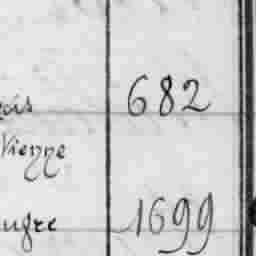 ois 682
Vienne
ugre 1699